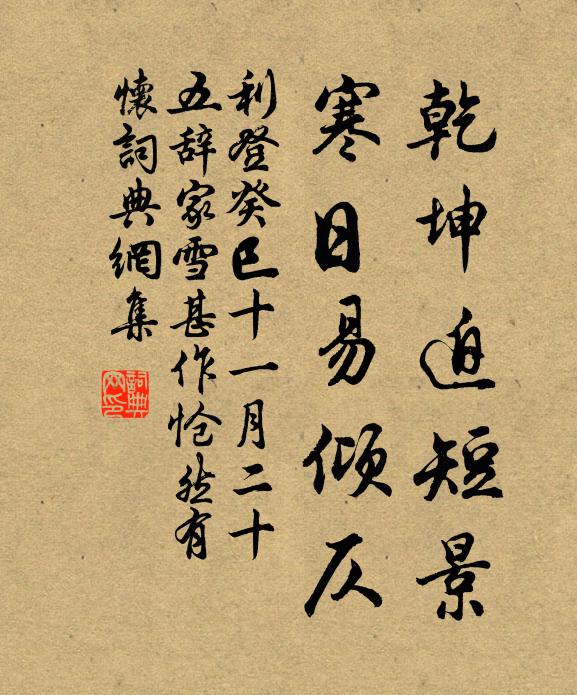 乾坤迫短景
寒日易倾仄
利登癸巳十一月二十
五辞家雪甚作怆然有
懷詞典網集
詞典
网印